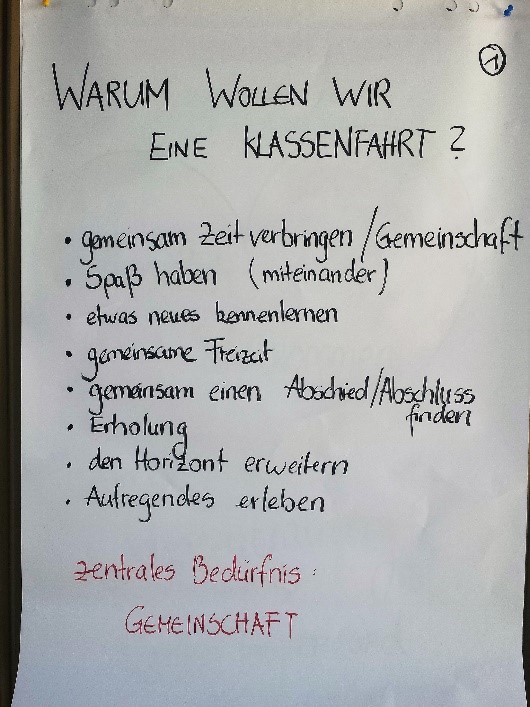 1
WARUM WOLLEN WIR
EINE KLASSENFAHRT ?
• gemeinsam Zeit verbringen / Gemeinschaft
• Spaß haben (miteinander)
• etwas neues kennenlernen
• gemeinsame Freizeit
• gemeinsam einen Abschied/Abschluss
finden
• Erholung
• den Horizont erweitern
• Aufregendes erleben
zentrales Bedürfnis :
GEMEINSCHAFT